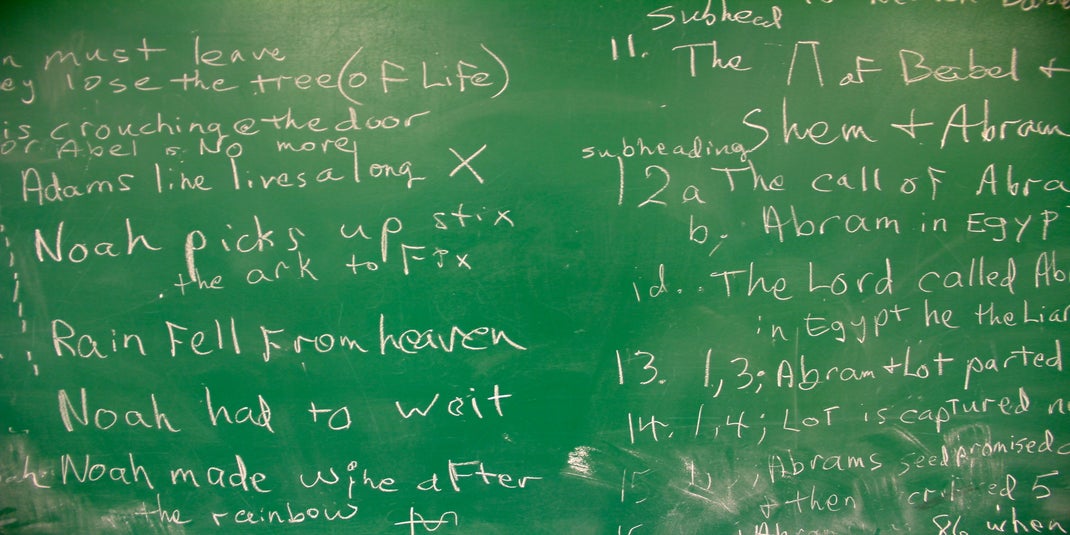 must leave
lose the tree (of Life)
is crouching @ the door
or Abel is No more
Adams line lives along X
Noah picks up stix
the ark to Fix
Rain Fell From heaven
Noah had to wait
Noah made wine after
the rainbow
Subhead
11. The Π of Babel +
Shem + Abram
subheading
12a The call of Abra
b. Abram in Egyp
id.. The Lord called Ab
in Egypt he the Liar
13. 1,3; Abram + Lot parted
14. 1,4; Lot is captured
15 Abrams seed promised
+ then 5
86 when